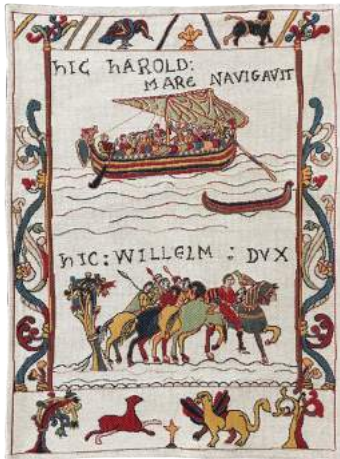 hIC hAROLD:
MARE NAVIGAVIT
hIC: WILLELM : DVX